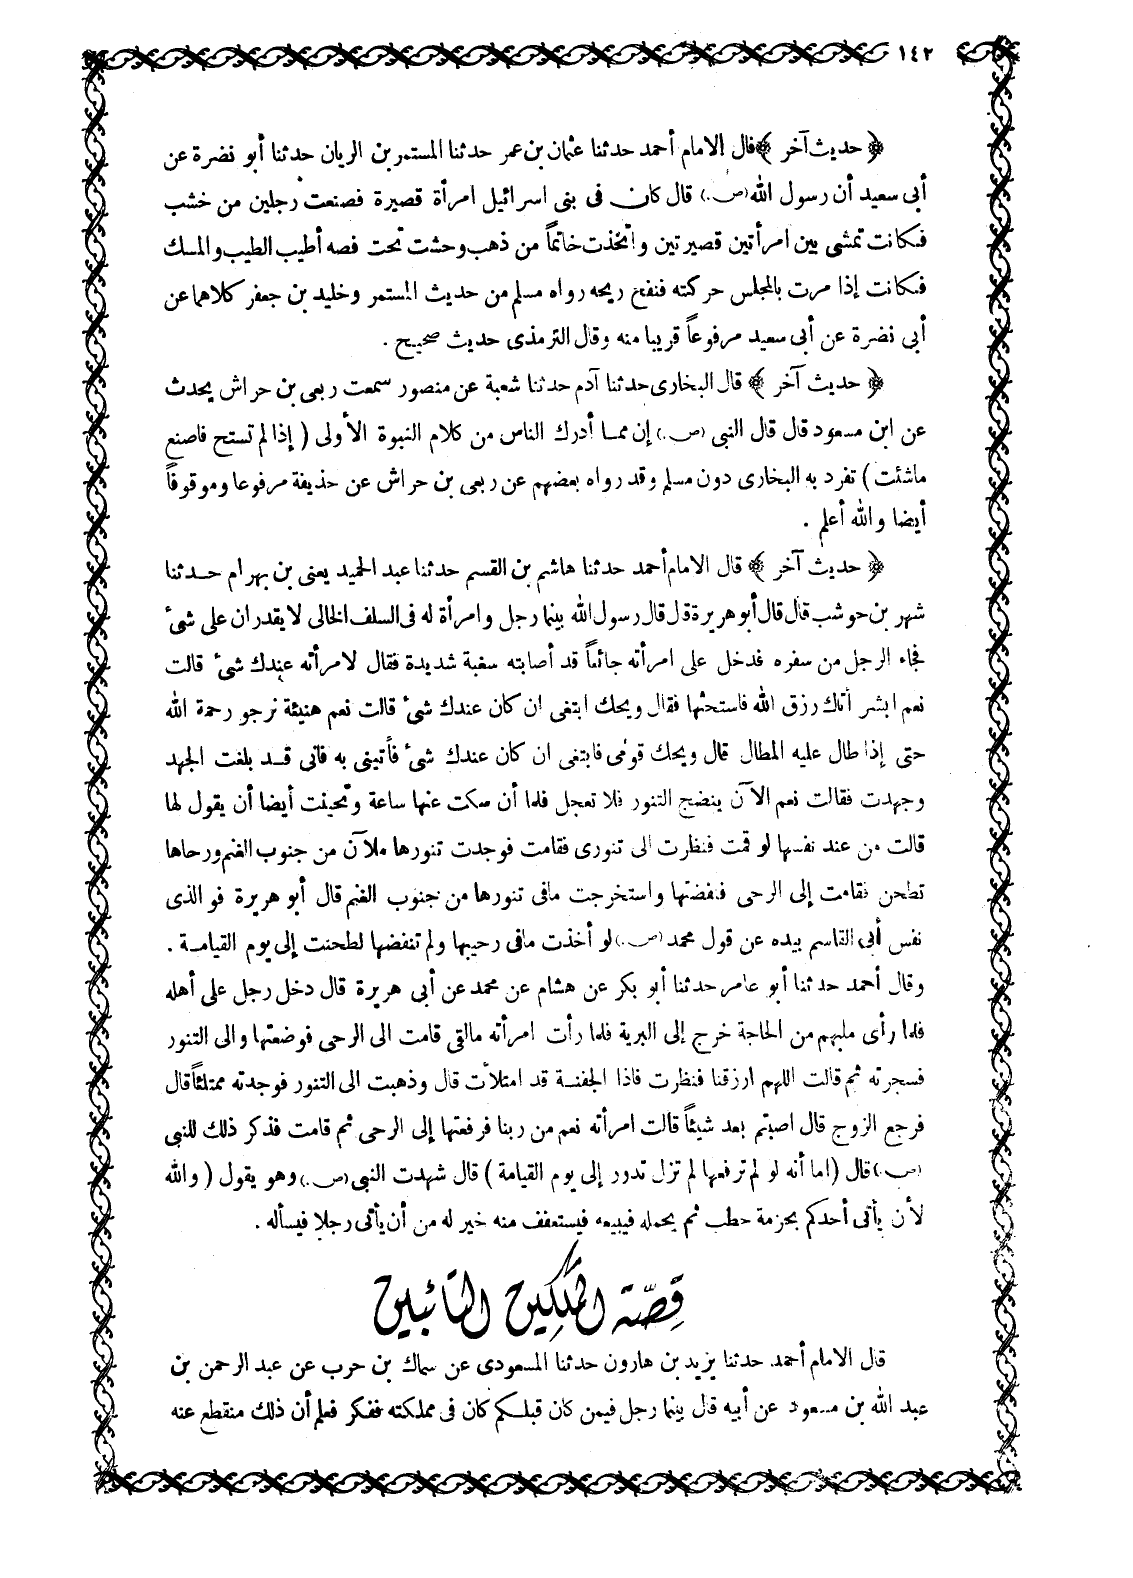 ١٤٢
﴿ حديث آخر ﴾ قال الامام أحمد حدثنا عثمان بن عمر حدثنا المستمر بن الريان حدثنا أبو نضرة عن
أبى سعيد أن رسول الله (ص.) قال كان فى بنى اسرائيل امرأة قصيرة فصنعت رجلين من خشب
فكانت تمشى بين امرأتين قصيرتين واتخذت خاتماً من ذهب وحشت تحت فصه أطيب الطيب والمسك
فكانت إذا مرت بالمجلس حركته فنفخ ريحه رواه مسلم من حديث المستمر وخليد بن جعفر كلاهما عن
أبى نضرة عن أبى سعيد مرفوعاً قريبا منه وقال الترمذى حديث صحيح .
﴿ حديث آخر ﴾ قال البخارى حدثنا آدم حدثنا شعبة عن منصور سمعت ربعى بن حراش يحدث
عن ابن مسعود قال قال النبى (ص.) إن ممـا أدرك الناس من كلام النبوة الأولى ( إذا لم تستح فاصنع
ماشئت ) تفرد به البخارى دون مسلم وقد رواه بعضهم عن ربعى بن حراش عن حذيفة مرفوعا وموقوفاً
أيضا والله أعلم .
﴿ حديث آخر ﴾ قال الامام أحمد حدثنا هاشم بن القسم حدثنا عبد الحميد يعنى بن بهرام حـدثنا
شهر بن حوشب قال قال أبو هريرة قل قال رسول الله بينما رجل وامرأة له فى السلف الخالى لا يقدران على شىء
فجاء الرجل من سفره فدخل على امرأته جائعاً قد أصابته سغبة شديدة فقال لامرأته عندك شىء قالت
نعم ابشر أتاك رزق الله فاستحثها فقال ويحك ابتغى ان كان عندك شىء قالت نعم هنيئة نرجو رحمة الله
حتى إذا طال عليه المطال قال ويحك قومى فابتغى ان كان عندك شىء فأتينى به فانى قـد بلغت الجهد
وجهدت فقالت نعم الآن ينضج التنور فلا تعجل فلما أن سكت عنها ساعة وتحينت أيضا أن يقول لها
قالت من عند نفسها لو قمت فنظرت الى تنورى فقامت فوجدت تنورها ملآن من جنوب الغنم ورحاها
تطحن فقامت إلى الرحى فنفضتها واستخرجت مافى تنورها من جنوب الغنم قال أبو هريرة فو الذى
نفس أبى القاسم بيده عن قول محمد (ص.) لو أخذت مافى رحييها ولم تنفضها لطحنت إلى يوم القيامـة .
وقال أحمد حدثنا أبو عامر حدثنا أبو بكر عن هشام عن محمد عن أبى هريرة قال دخل رجل على أهله
فلما رأى مابهم من الحاجة خرج إلى البرية فلما رأت امرأته مالقى قامت الى الرحى فوضعتها والى التنور
فسجرته ثم قالت اللهم ارزقنا فنظرت فاذا الجفنـة قد امتلأت قال وذهبت الى التنور فوجدته ممتلئاً قال
فرجع الزوج قال اصبتم بعد شيئاً قالت امرأته نعم من ربنا فرفعتها إلى الرحى ثم قامت فذكر ذلك للنبى
(ص.) قال ( اما أنه لو لم ترفعها لم تزل تدور إلى يوم القيامة ) قال شهدت النبى (ص.) وهو يقول ( والله
لأن يأتى أحدكم بحزمة حطب ثم يحمله فيبيعه فيستعفف منه خير له من أن يأتى رجلا فيسأله .
قِصّة المَلِكين التَائبين
قال الامام أحمد حدثنا يزيد بن هارون حدثنا المسعودى عن سماك بن حرب عن عبد الرحمن بن
عبد الله بن مسعود عن أبيه قال بينما رجل فيمن كان قبلـكم كان فى مملكته ففكر فعلم أن ذلك منقطع عنه